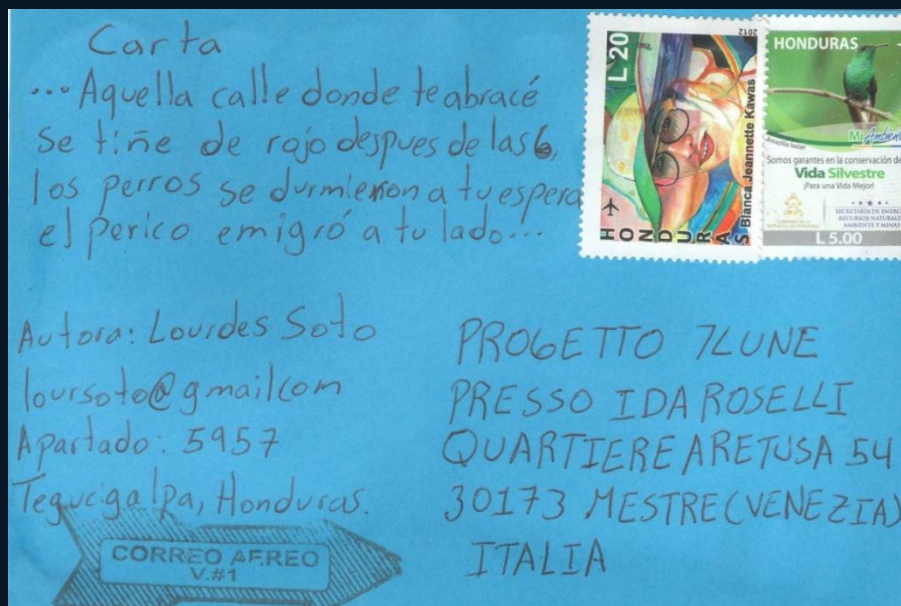 Carta
...Aquella calle donde te abracé
se tiñe de rojo despues de las 6,
los perros se durmieron a tu espera
el perico emigró a tu lado...
Autora: Lourdes Soto
loursoto@gmailcom
Apartado: 5957
Tegucigalpa, Honduras.
CORREO AEREO
V.#1
L 20
2012
HONDURAS
Blanca Jeannette Kawas
HONDURAS
Mi Ambiente
Somos garantes en la conservación de
Vida Silvestre
¡Para una Vida Mejor!
SECRETARÍA DE ENERGÍA
RECURSOS NATURALES
AMBIENTE Y MINAS
L 5.00
PROGETTO 7LUNE
PRESSO IDA ROSELLI
QUARTIERE ARETUSA 54
30173 MESTRE (VENEZIA)
ITALIA